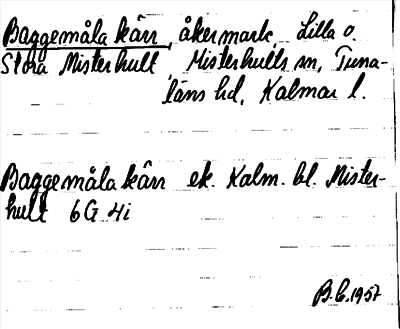 Baggemåla kärr, åkermark, Lilla o.
Stora Misterhult, Misterhults sn, Tuna-
läns hd, Kalmar l.
Baggemåla kärr ek. Kalm. bl. Mister-
hult 6G 4i
B.C. 1957